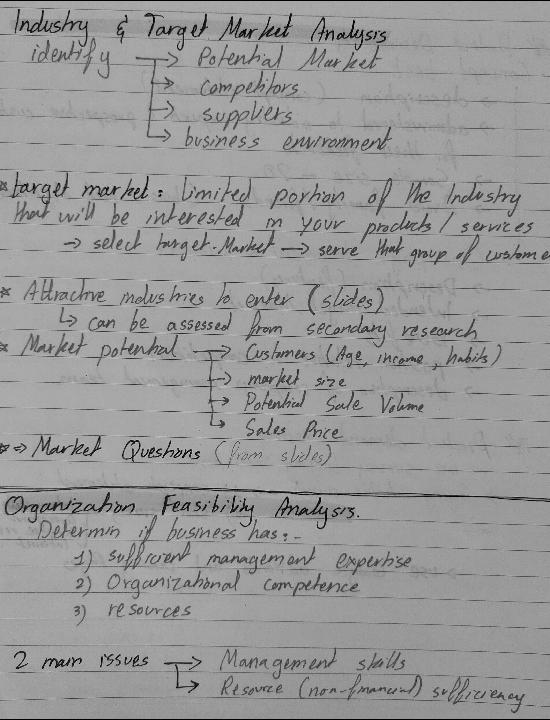 Industry & Target Market Analysis
identify → Potential Market
→ competitors
→ suppliers
→ business environment
* target market : Limited portion of the Industry
that will be interested in your products / services
→ select target Market → serve that group of custome
* Attractive industries to enter (slides)
↳ can be assessed from secondary research
* Market potential → Customers (Age, income, habits)
→ market size
→ Potential Sale Volume
→ Sales Price
* ⇒ Market Questions (from slides)
Organization Feasibility Analysis.
Determin if business has:-
1) sufficient management expertise
2) Organizational competence
3) resources
2 main issues → Management skills
→ Resource (non-financial) sufficiency